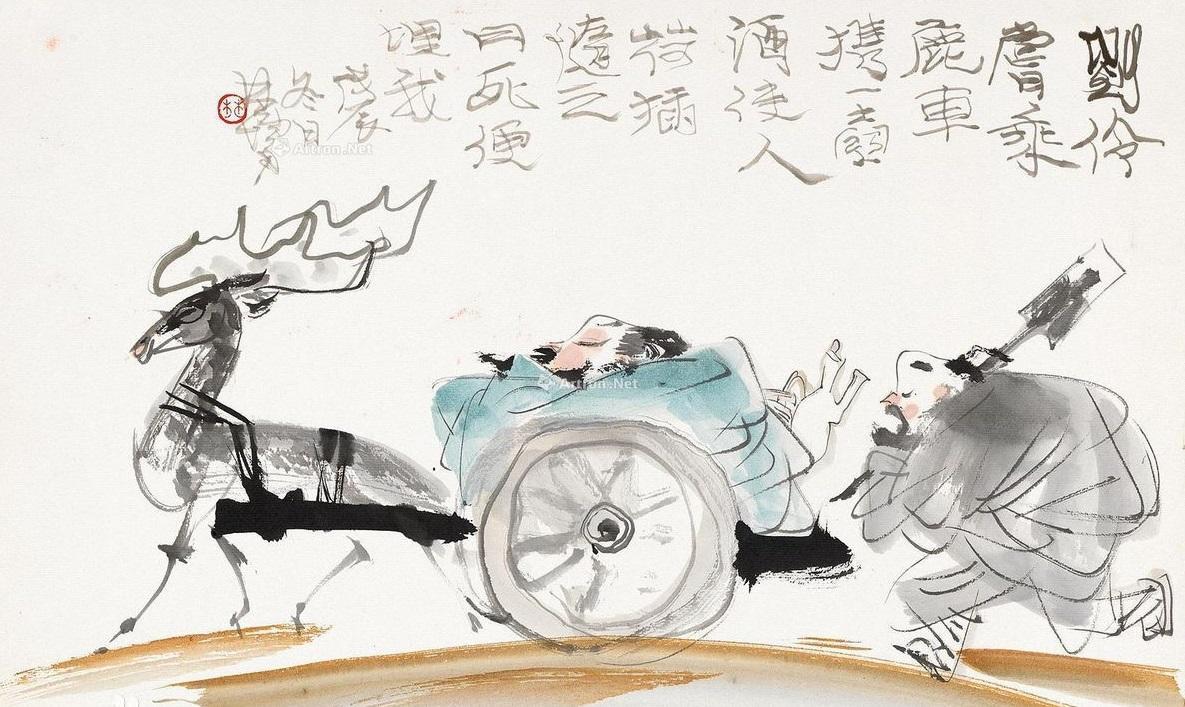 劉伶
嘗乘
鹿車
攜一壺
酒使人
荷插
隨之
曰死便
埋我
戊辰
冬日
林
Artron.Net
Artron.Net